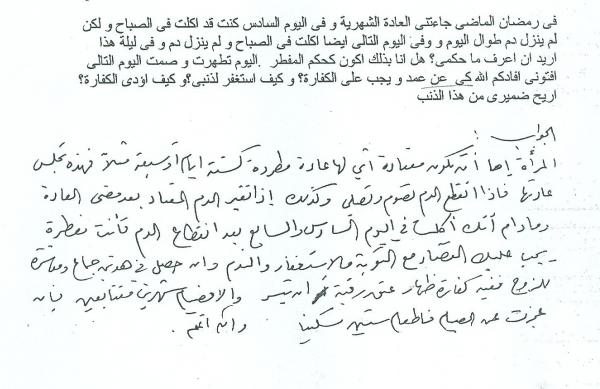 فى رمضان الماضى جاءتنى العادة الشهرية و فى اليوم السادس كنت قد اكلت فى الصباح و لكن
لم ينزل دم طوال اليوم و وفى اليوم التالى ايضا اكلت فى الصباح و لم ينزل دم و فى ليلة هذا
اليوم تطهرت و صمت اليوم التالى. اريد ان اعرف ما حكمى؟ هل انا بذلك اكون كحكم المفطر
عن عمد و يجب على الكفارة؟ و كيف استغفر لذنبى؟و كيف اؤدى الكفارة؟ افتونى افادكم الله كى
اريح ضميرى من هذا الذنب
الجواب:
المرأة إما أن تكون معتادة أي لها عادة مطردة كستة أيام أو سبعة مثلاً فهذه تجلس
عادتها فإذا انقطع الدم تصوم وتصلي وكذلك إذا تغير الدم المعتاد بعد مضي العادة
وما دام أنك أكلت في اليوم السادس والسابع بعد انقطاع الدم فأنت مفطرة
يجب عليك القضاء مع التوبة والاستغفار والندم وإن حصل في هذين جماع
للزوج ففيه كفارة ظهار عتق رقبة إن تيسر وإلا فصيام شهرين متتابعين فإن
عجزت عن الصيام فإطعام ستين مسكيناً والله أعلم.